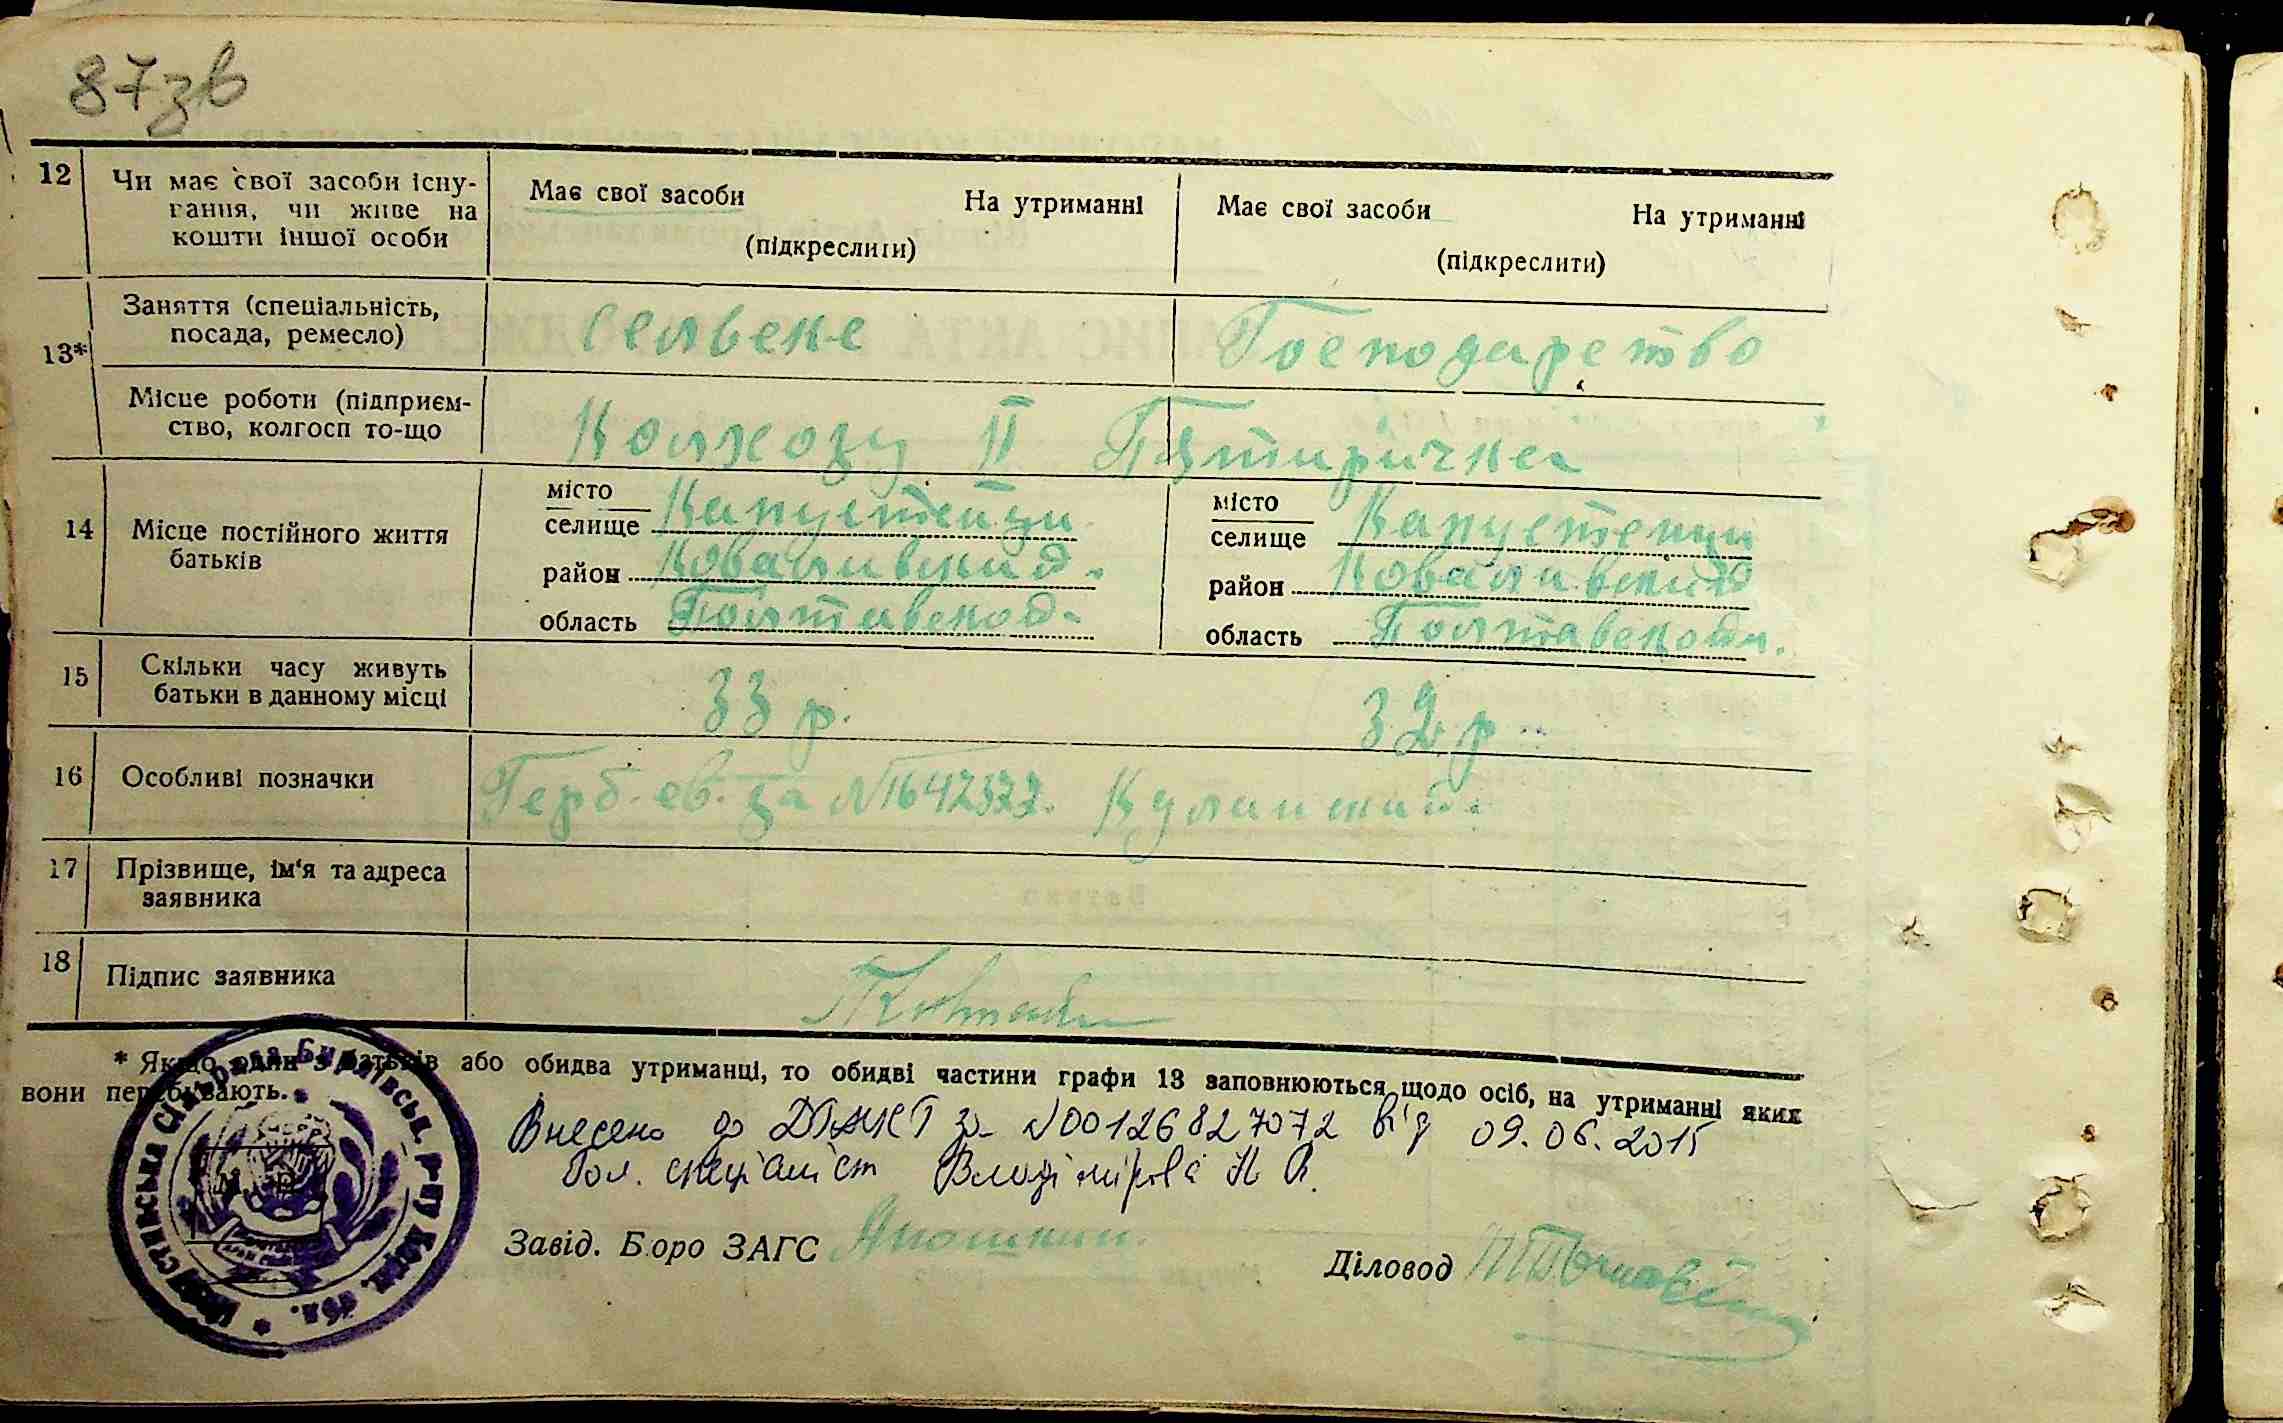 87зв
12 Чи має свої засоби існу- Має свої засоби На утриманні Має свої засоби На утриманні
вання, чи живе на
кошти іншої особи (підкреслити) (підкреслити)
13* Заняття (спеціальність, Сельське Господарство
посада, ремесло)
Місце роботи (підприєм- Колхозу II Пятирічка
ство, колгосп то-що
14 Місце постійного життя місто місто
батьків селище Капустенци селище Капустенци
район Ковалівський район Ковалівський
область Полтавської область Полтавської
15 Скільки часу живуть 33 р. 32 р.
батьки в данному місці
16 Особливі позначки Герб. св. за №
17 Прізвище, ім'я та адреса
заявника
18 Підпис заявника
* Якщо один з батьків або обидва утриманці, то обидві частини графи 13 заповнюються щодо осіб, на утриманні яких
вони перебувають.
Внесено до за №00126827072 від 09.06.2015
Гол. спеціаліст Владімірова Н В.
Завід. Бюро ЗАГС
Діловод